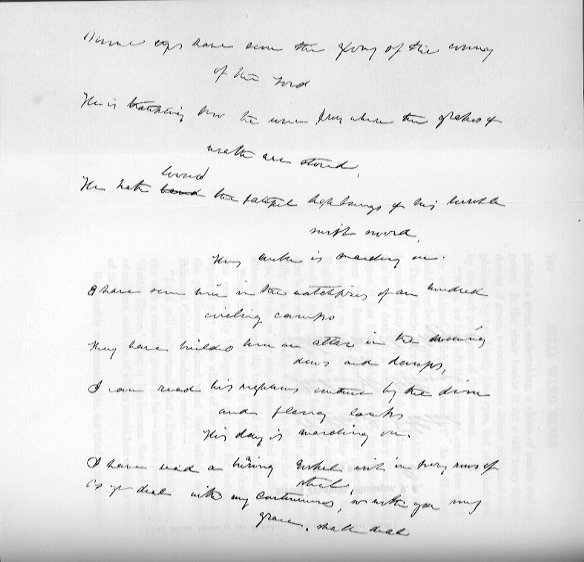 Mine eyes have seen the glory of the coming
of the Lord
He is trampling out the wine press where the grapes of
wrath are stored,
loosed
He hath the fateful lightnings of his terrible
swift sword,
His truth is marching on.
I have seen him in the watchfires of an hundred
circling camps
They have builded him an altar in the evening
dews and damps,
I can read his righteous sentence by the dim
and flaring lamps
His day is marching on.
I have read a burning Gospel writ in fiery rows of
steel,
As ye deal with my contemners, so with you my
grace shall deal